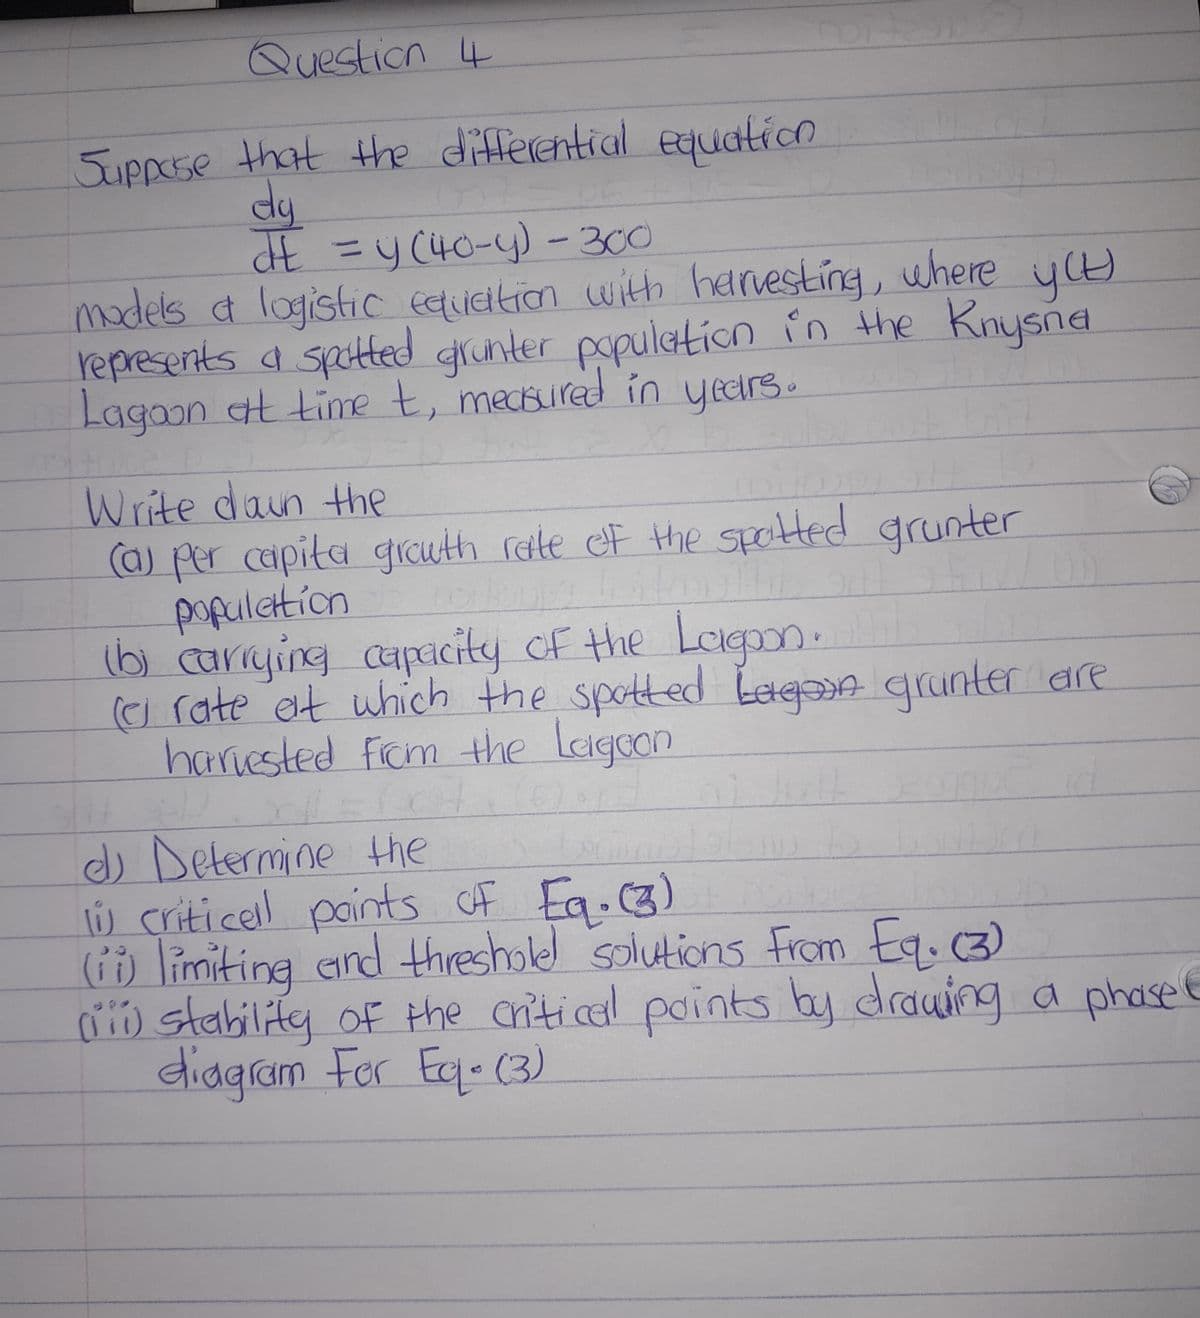 Question 4
Suppose that the differential equation
dy
dt = y (40-y) - 300
models a logistic equation with harvesting, where y(t)
represents a spotted grunter population in the Knysna
Lagoon at time t, measured in years.
Write down the
(a) per capita growth rate of the spotted grunter
population
(b) carrying capacity of the Lagoon.
(c) rate at which the spotted Lagoon grunter are
harvested from the Lagoon
d) Determine the
(i) critical points of Eq. (3)
(ii) limiting and threshold solutions from Eq. (3)
(iii) stability of the critical points by drawing a phase
diagram for Eq. (3)